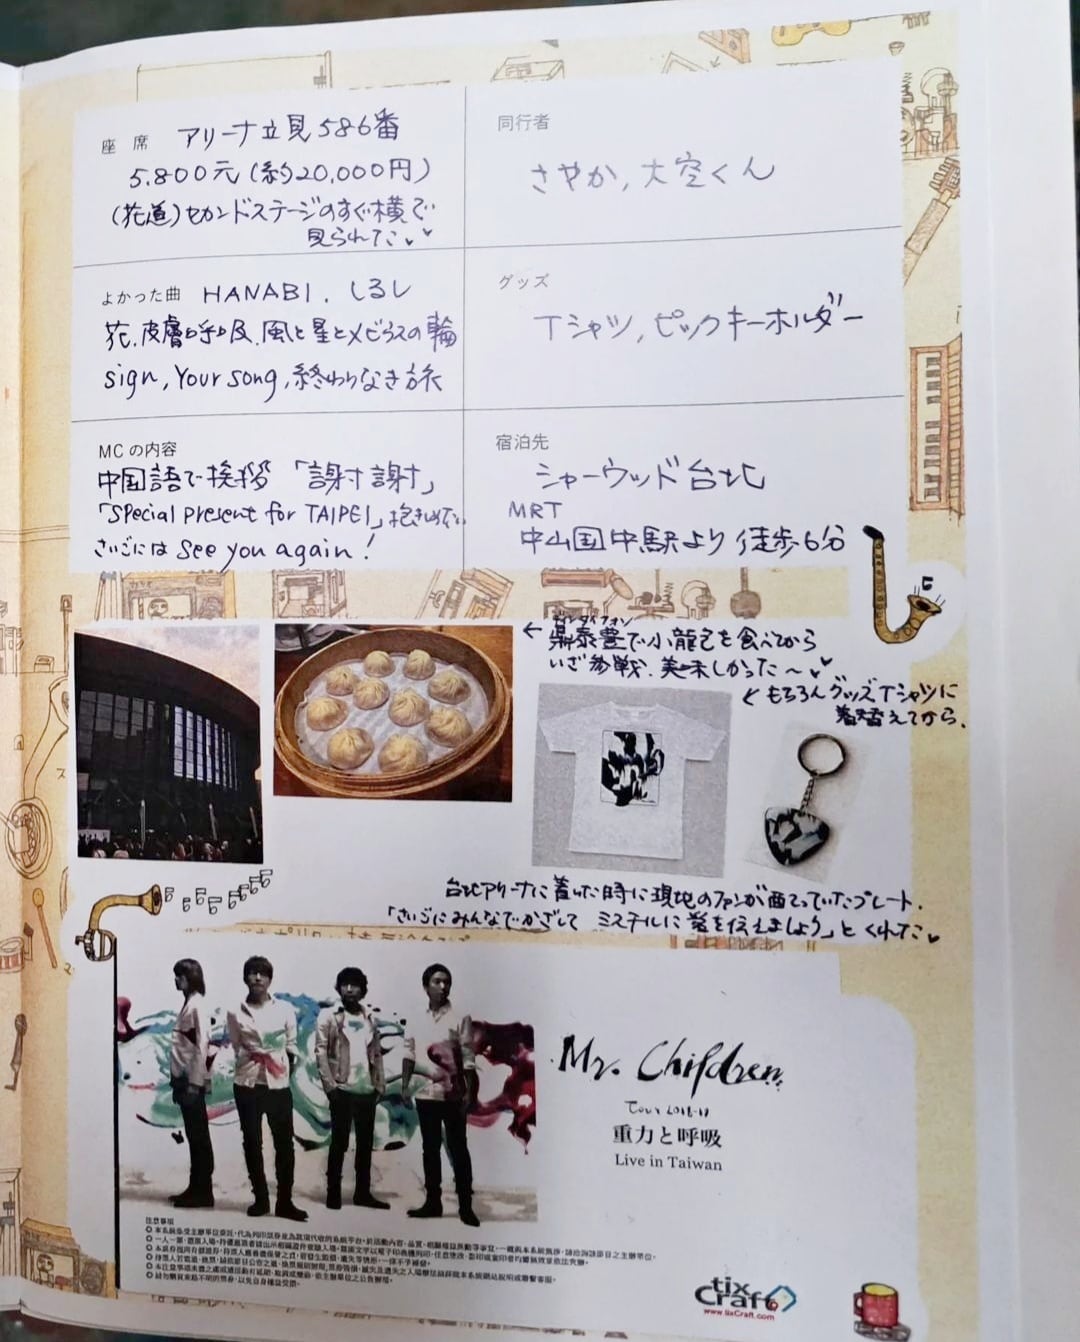 座 席 アリーナ立見586番
5,800元(約20,000円)
(花道)セカンドステージのすぐ横で
見られた
同行者
さやか,大空くん
よかった曲 HANABI. しるし
花.皮膚呼吸.風と星とメビウスの輪
sign, Your song, 終わりなき旅
グッズ
Tシャツ,ピックキーホルダー
MCの内容
中国語で挨拶「謝謝」
「Special present for TAIPEI」抱きしめたい
さいごには See you again!
宿泊先
シャーウッド台北
MRT
中山国中駅より徒歩6分
ディンタイフォン
←鼎泰豊で小龍包を食べてから
いざ参戦.美味しかった〜
←もちろんグッズTシャツに
着替えてから.
台北アリーナに着いた時に現地のファンが配っていたプレート.
「さいごにみんなでかざして ミスチルに愛を伝えましょう」とくれた
Mr. Children
Tour 2018-19
重力と呼吸
Live in Taiwan
注意事項
tix
Craft
www.tixCraft.com